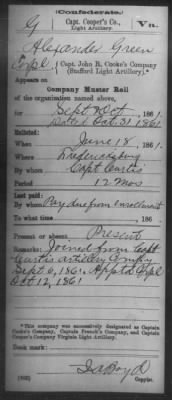 (Confederate.)
G Capt. Cooper's Co., Va.
Light Artillery.*
Alexander Green
Corpl, { Capt. John R. Cooke's Company
(Stafford Light Artillery).*
Appears on
Company Muster Roll
of the organization named above,
for Sept & Oct, 1861.
Date Oct. 31, 1861
Enlisted:
When June 18, 1861.
Where Fredericksburg
By whom Capt Curtis
Period 12 Mos
Last paid:
By whom Pay due from Enrollment
To what time , 186 .
Present or absent Present
Remarks: Joined from Capt
Curtis artillery Compy
Sept 6, 1861, Apptd Corpl
Oct 12, 1861
*This company was successively designated as Captain
Cooke's Company, Captain French's Company, and Captain
Cooper's Company Virginia Light Artillery.
Book mark:
Copyist.